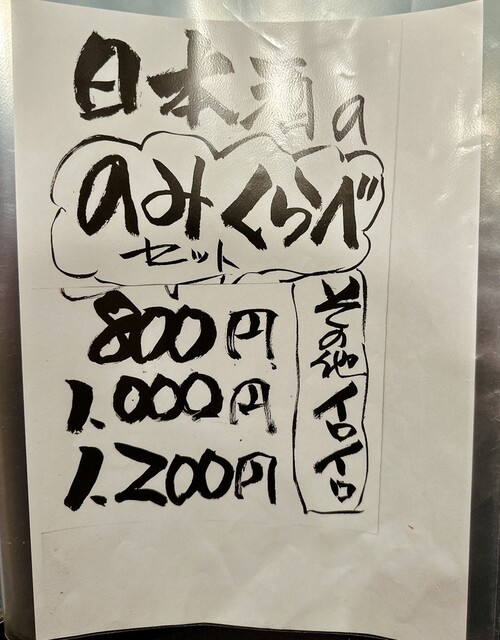 日本酒の
のみくらべ
セット
800円
1.000円
1.200円
その他イロイロ